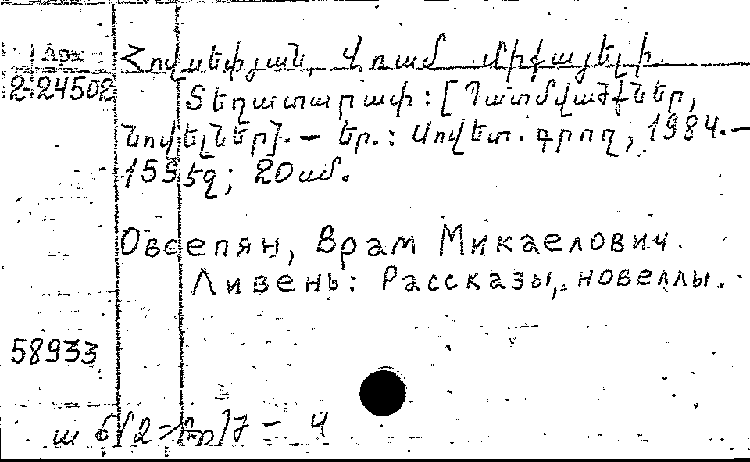 Հովսեփյան, Վռամ Միքայելի.
2-24502
Տեղատարափ: [Պատմվածքներ,
նովելներ].— Եր.: Սովետ. գրող, 1984.—
155 էջ; 20սմ.
Овсепян, Врам Микаелович.
Ливень: Рассказы, новеллы.
58933